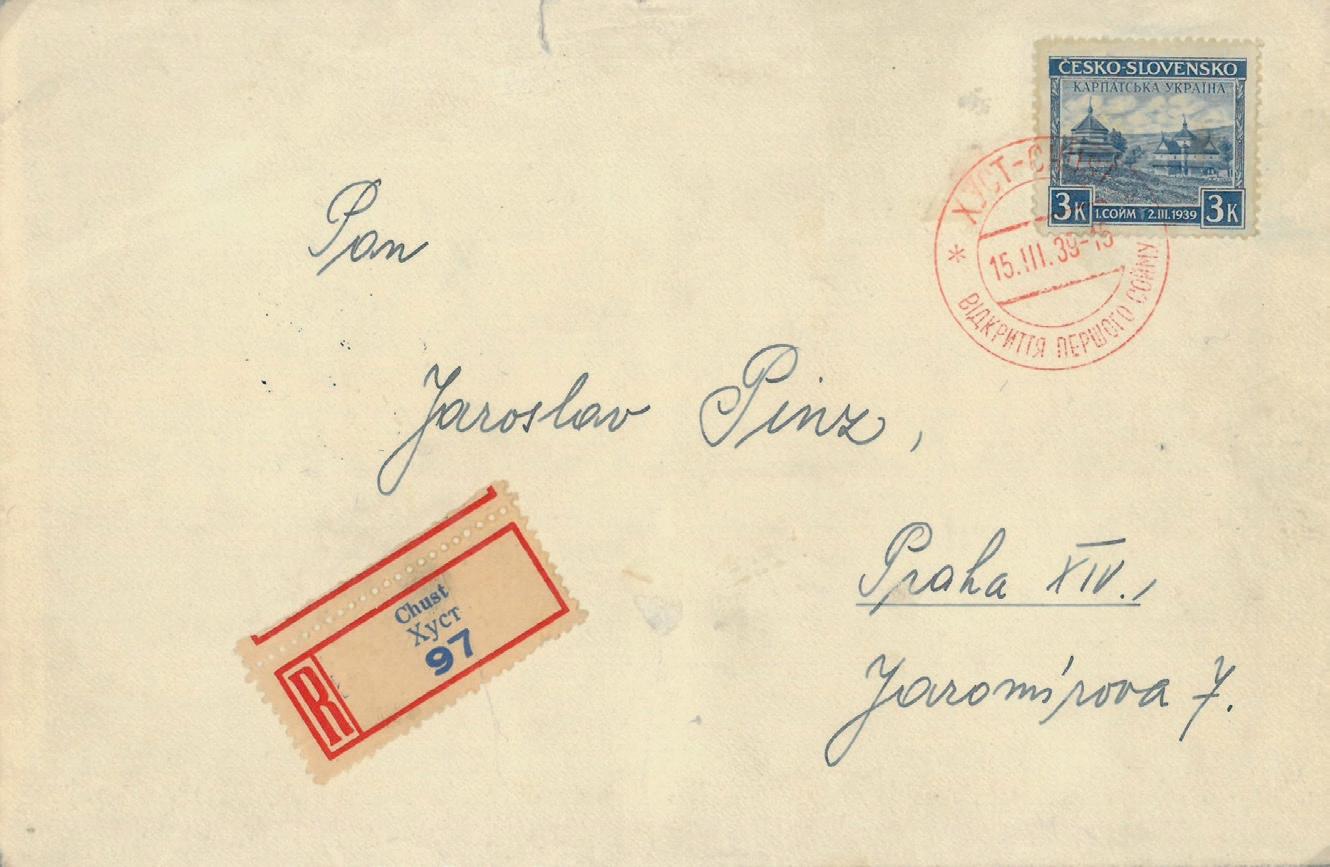 ČESKO-SLOVENSKO
КАРПАТСЬКА УКРАЇНА
3K I. СОЙМ 2.III.1939 3K
ХУСТ-
* 15.III.39-15
ВІДКРИТТЯ ПЕРШОГО СОЙМУ
Pan
Jaroslav Pinz,
Praha XIV.,
Jaromírova 7.
Chust
Хуст
97
R